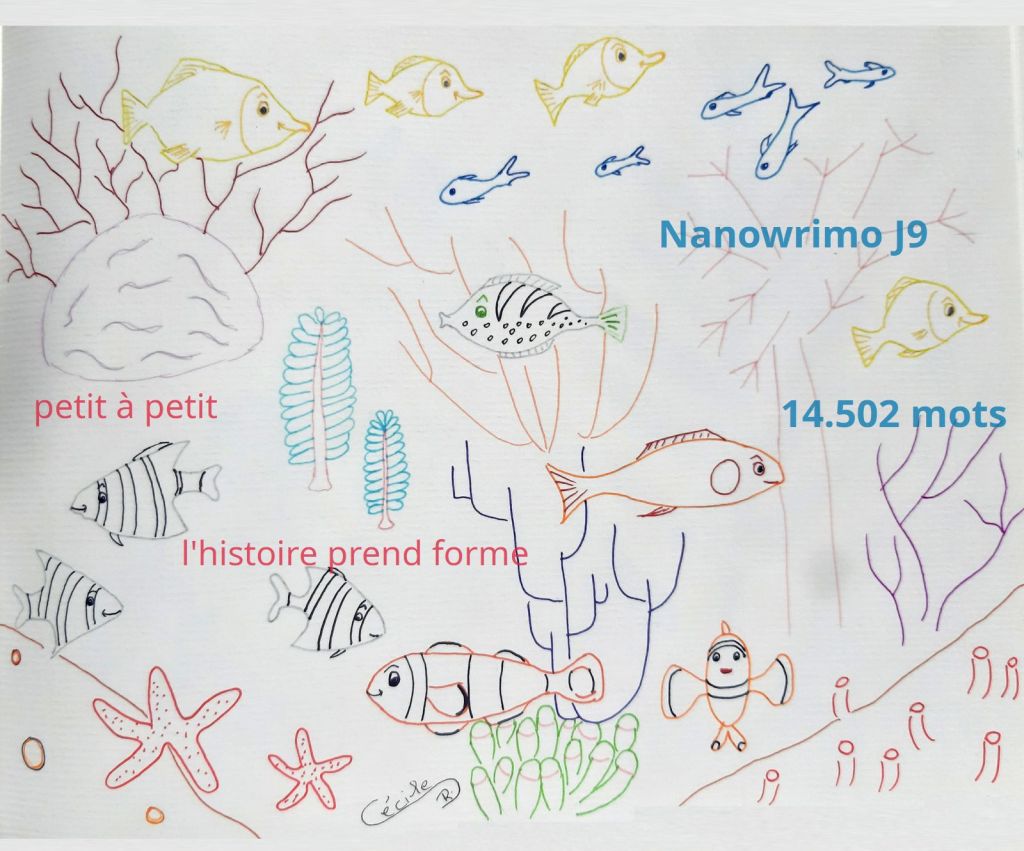 Nanowrimo J9
petit à petit
14.502 mots
l'histoire prend forme
Cécile
R.